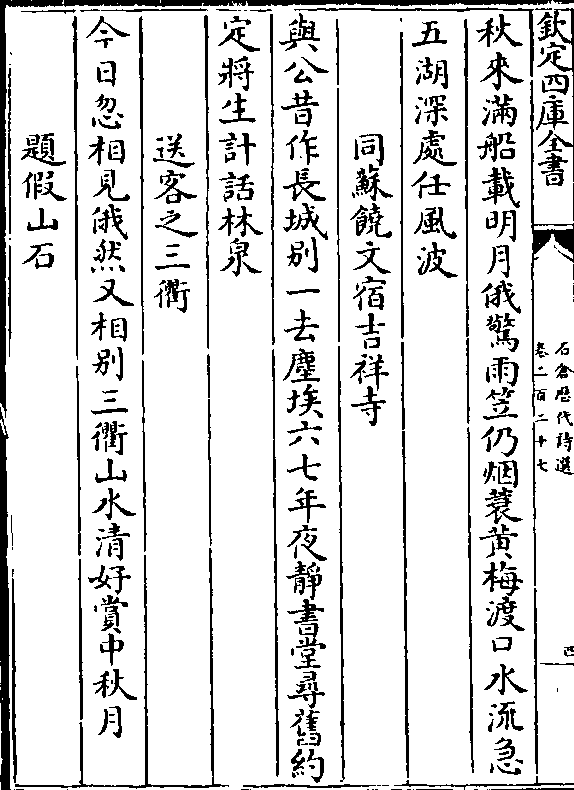 欽定四庫全書
石倉歴代詩選
卷二百二十七
四
秋來滿船載明月俄驚雨笠仍烟蓑黄梅渡口水流急
五湖深處任風波
同蘇饒文宿吉祥寺
與公昔作長城别一去塵埃六七年夜靜書堂尋舊約
定將生計話林泉
送客之三衢
今日忽相見俄然又相别三衢山水清好賞中秋月
題假山石